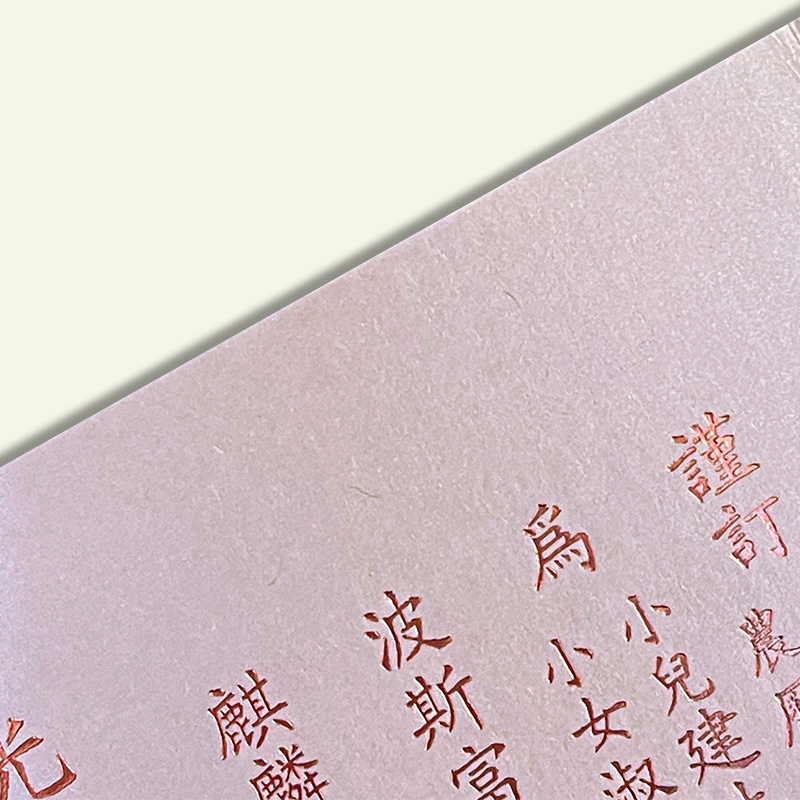 謹訂
農曆
小兒建
為
小女淑
波斯富
麒麟
光